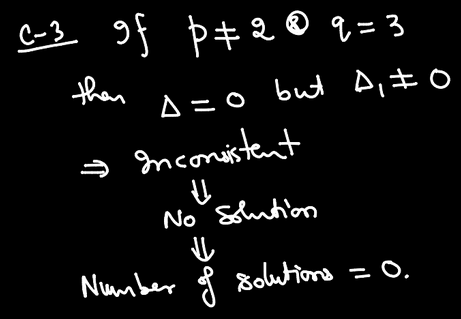 C-3 If p ≠ 2 & q = 3
then Δ = 0 but Δ₁ ≠ 0
⇒ Inconsistent
⇓
No Solution
⇓
Number of solutions = 0.